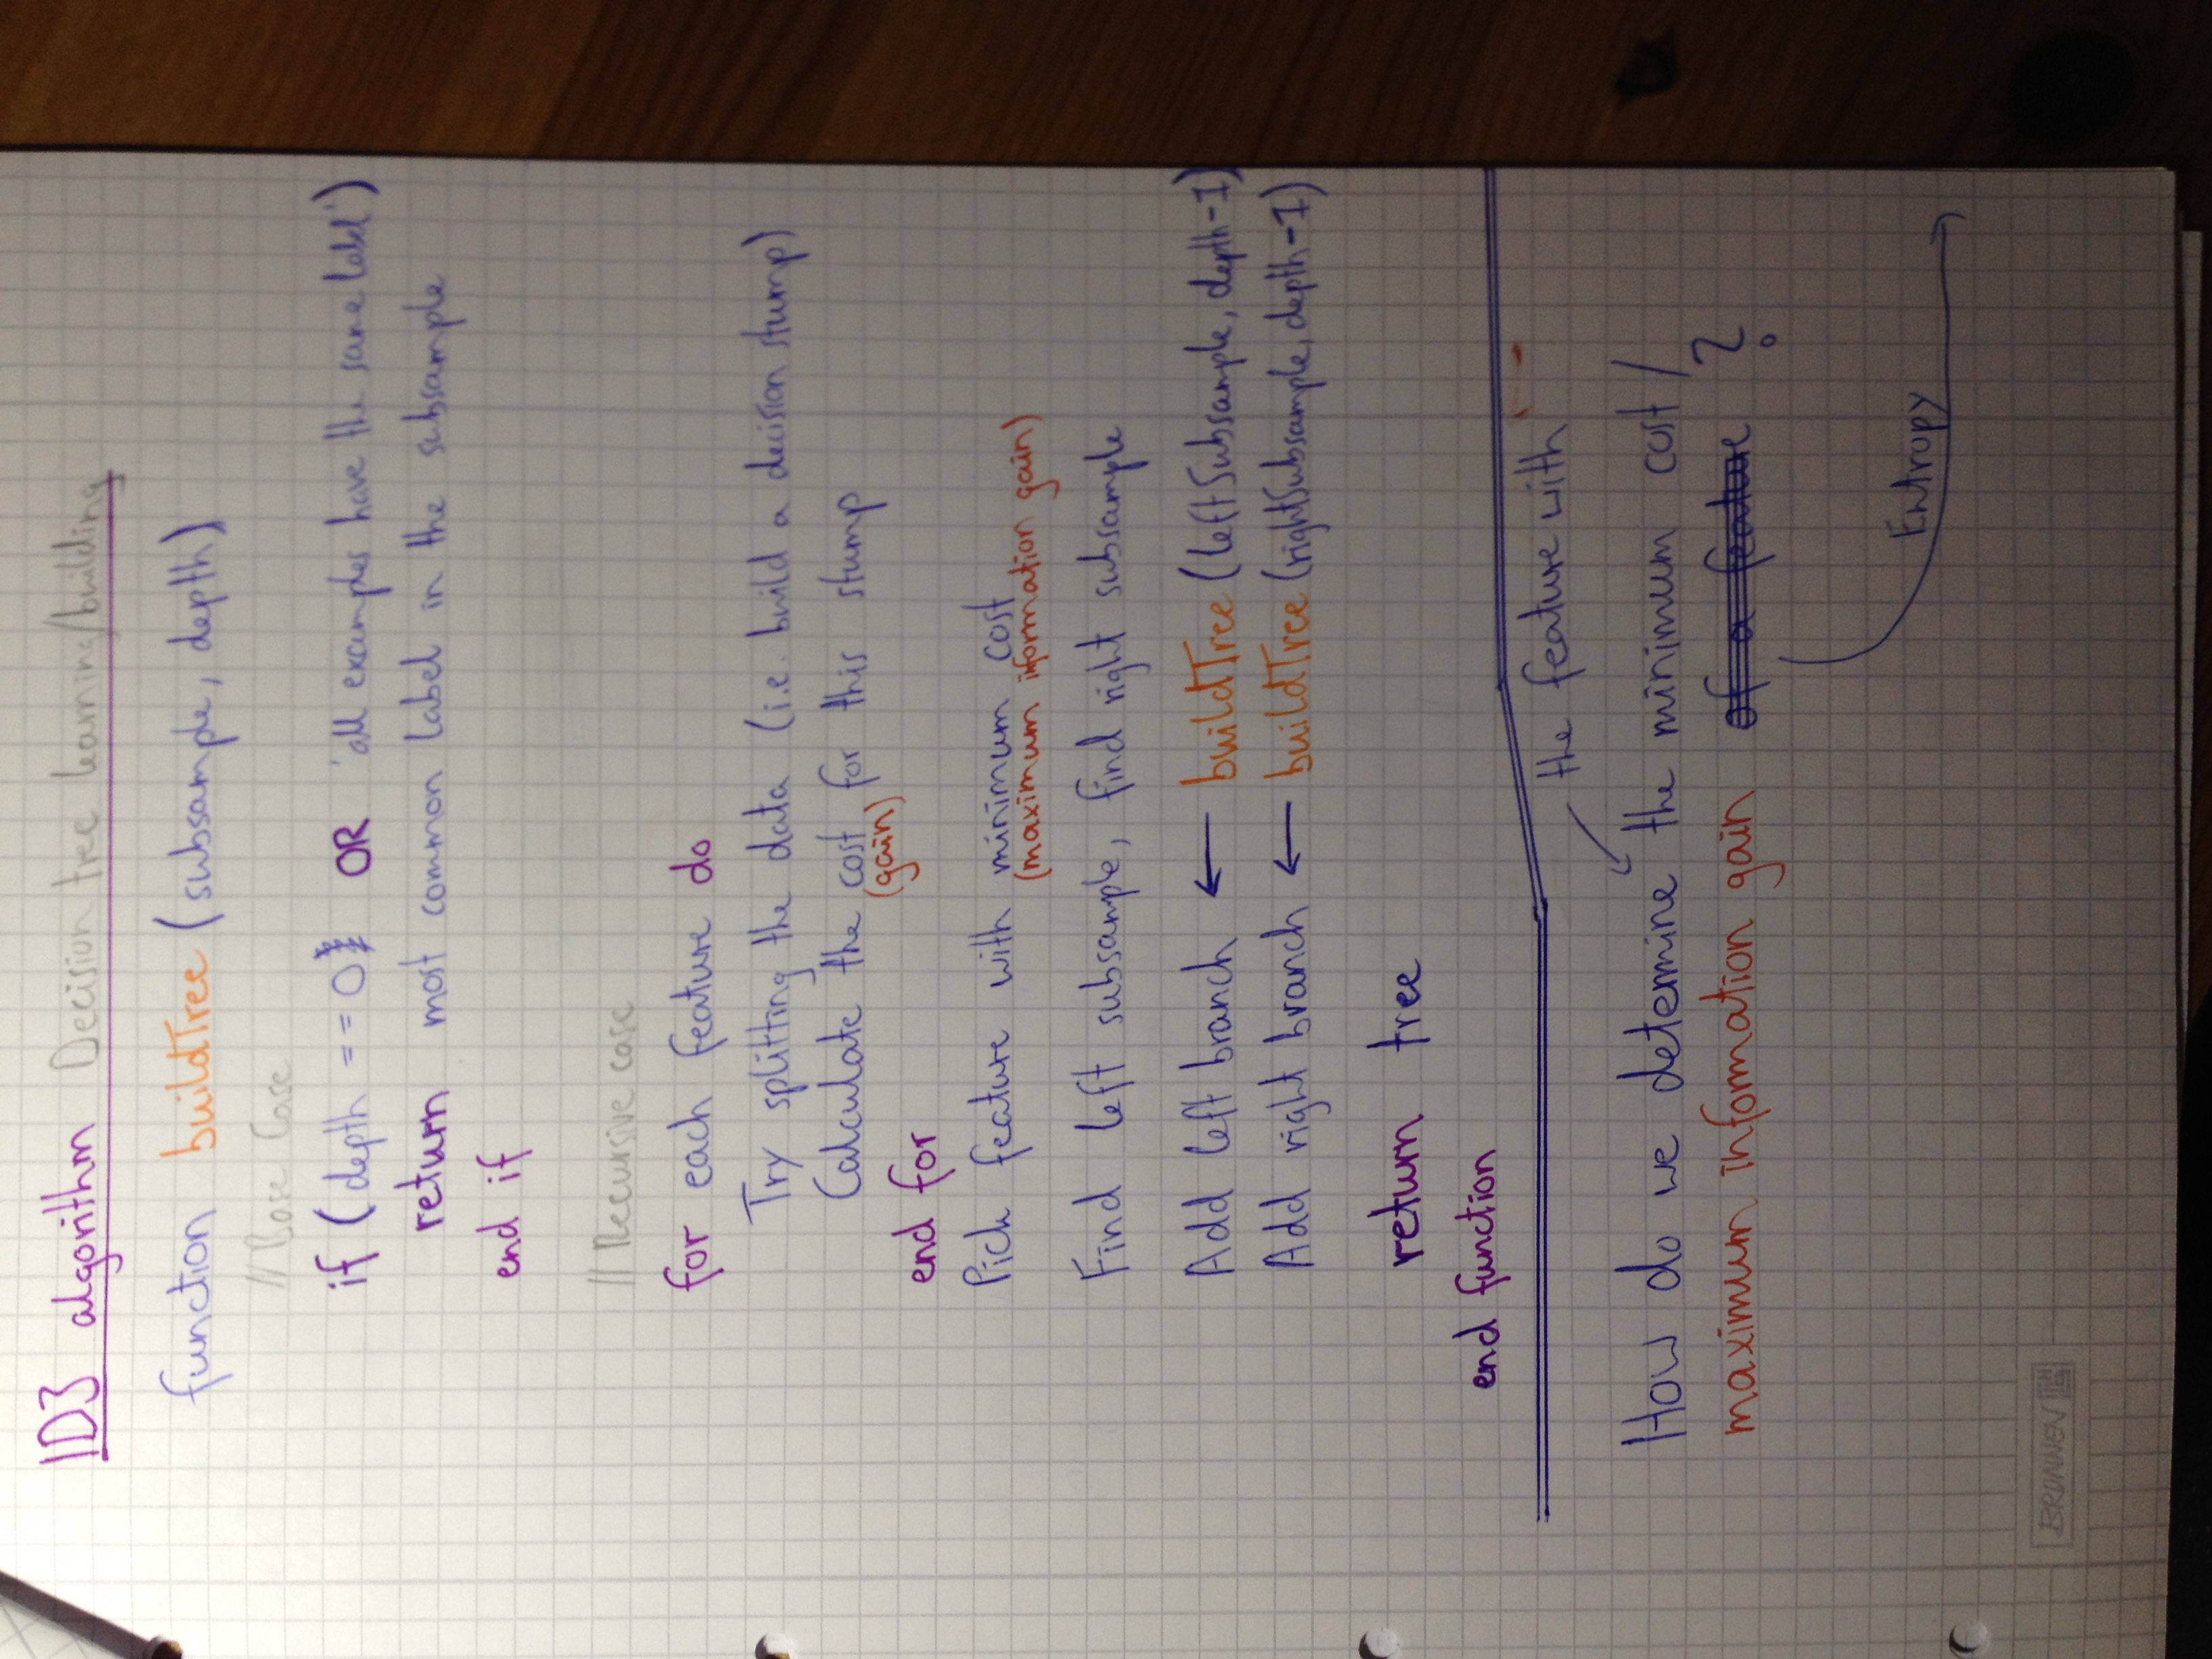 ID3 algorithm Decision tree learning/building
function buildTree (subsample, depth)
// Base Case
if (depth == 0 OR 'all examples have the same label')
return most common label in the subsample
end if
// Recursive case
for each feature do
Try splitting the data (i.e. build a decision stump)
Calculate the cost for this stump
(gain)
end for
Pick feature with minimum cost
(maximum information gain)
Find left subsample, find right subsample
Add left branch ← buildTree (leftSubsample, depth-1)
Add right branch ← buildTree (rightSubsample, depth-1)
return tree
end function
the feature with
How do we determine the minimum cost /
maximum information gain of a feature ?
Entropy
BRUNNEN